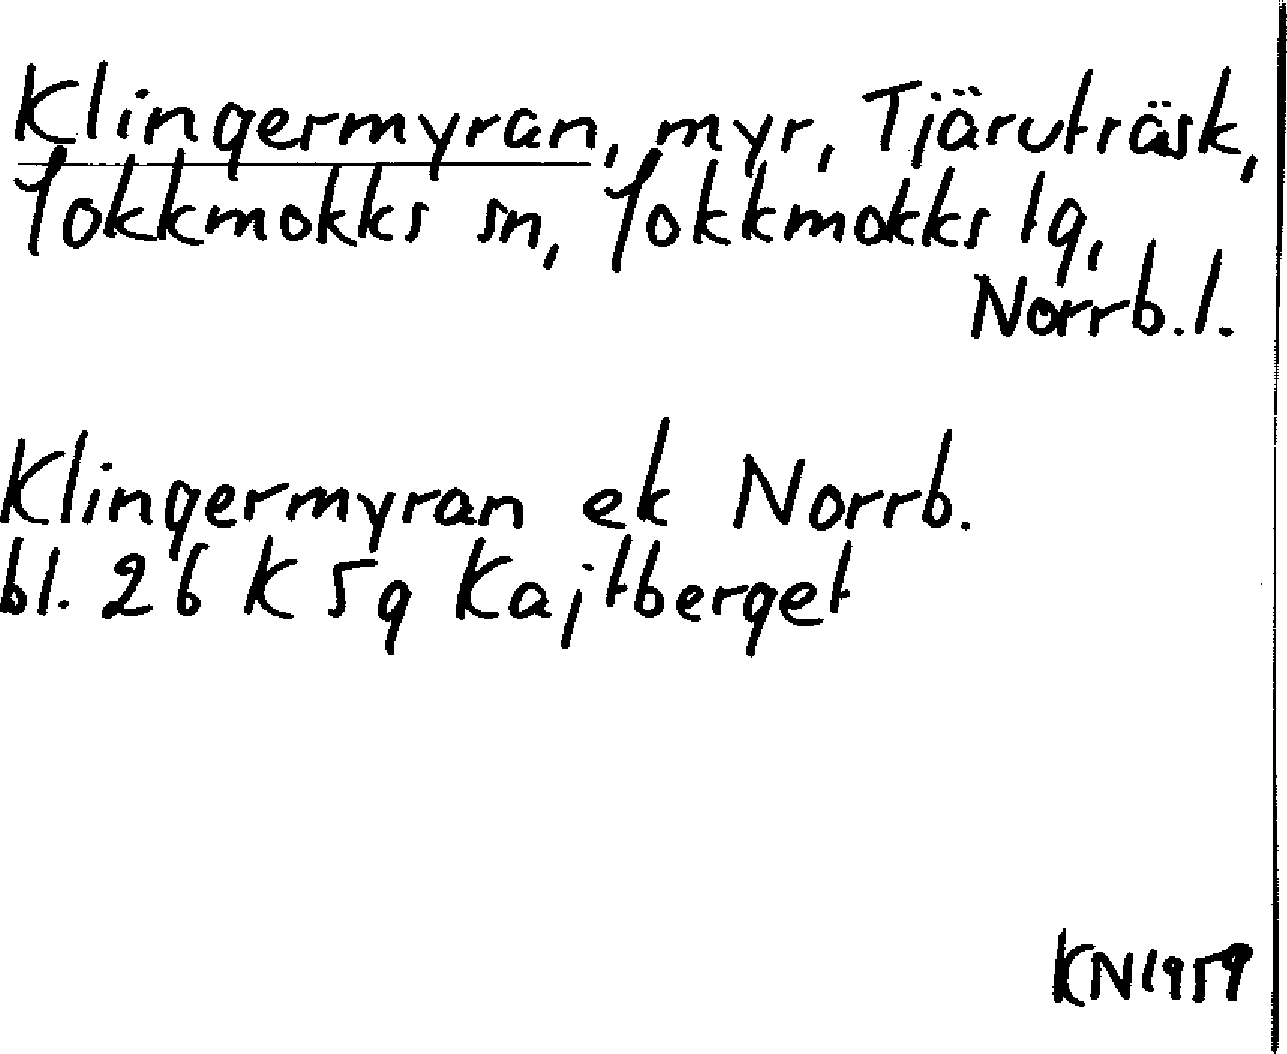 Klingermyran, myr, Tjäruträsk,
Jokkmokks sn, Jokkmokks lg,
Norrb.l.
Klingermyran ek Norrb.
bl. 26 K 5g Kajtberget
KN1959